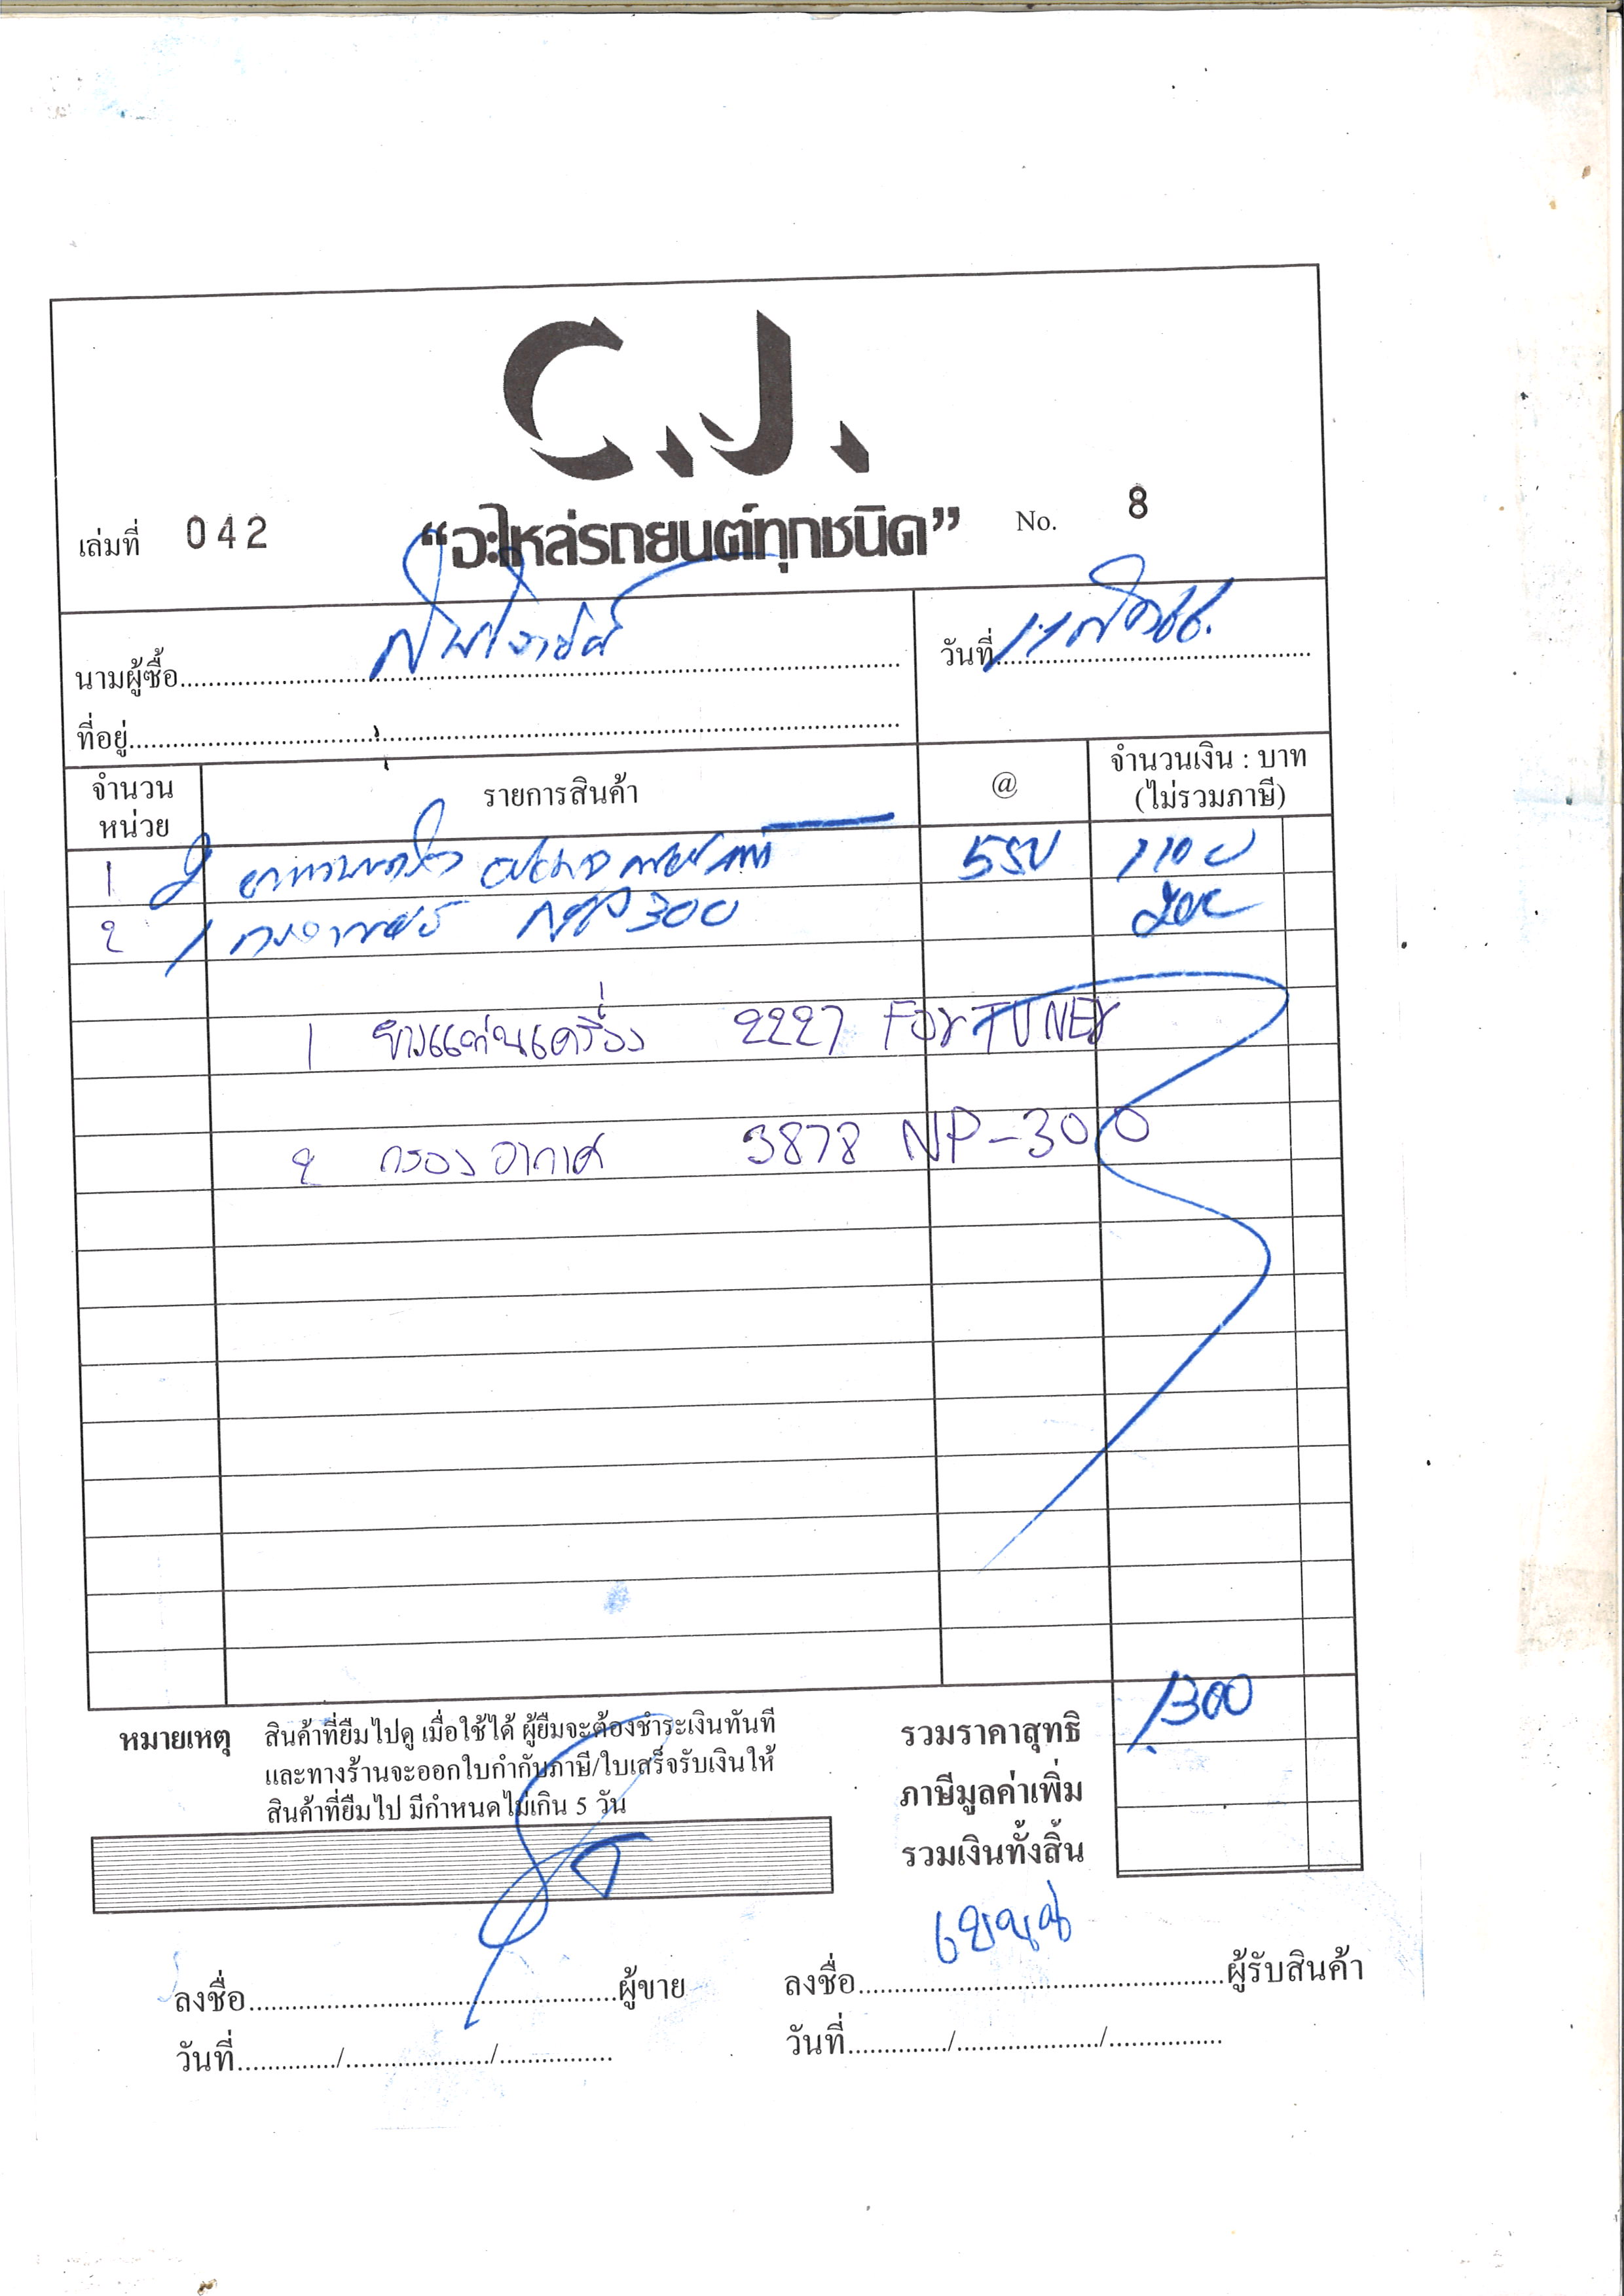 C.J.
เล่มที่ 042 “อะไหล่รถยนต์ทุกชนิด” No. 8
นามผู้ซื้อ
วันที่ 11
ที่อยู่
จำนวน หน่วย รายการสินค้า @ จำนวนเงิน : บาท (ไม่รวมภาษี)
1 2 550 1100
2 1 NP300 200
1 ยางแท่นเครื่อง 2227 ForTUNEr
2 กรองอากาศ 3878 NP-300
1300
หมายเหตุ สินค้าที่ยืมไปดู เมื่อใช้ได้ ผู้ยืมจะต้องชำระเงินทันที
และทางร้านจะออกใบกำกับภาษี/ใบเสร็จรับเงินให้
สินค้าที่ยืมไป มีกำหนดไม่เกิน 5 วัน
รวมราคาสุทธิ
ภาษีมูลค่าเพิ่ม
รวมเงินทั้งสิ้น
ลงชื่อ ผู้ขาย
ลงชื่อ ผู้รับสินค้า
วันที่ / /
วันที่ / /